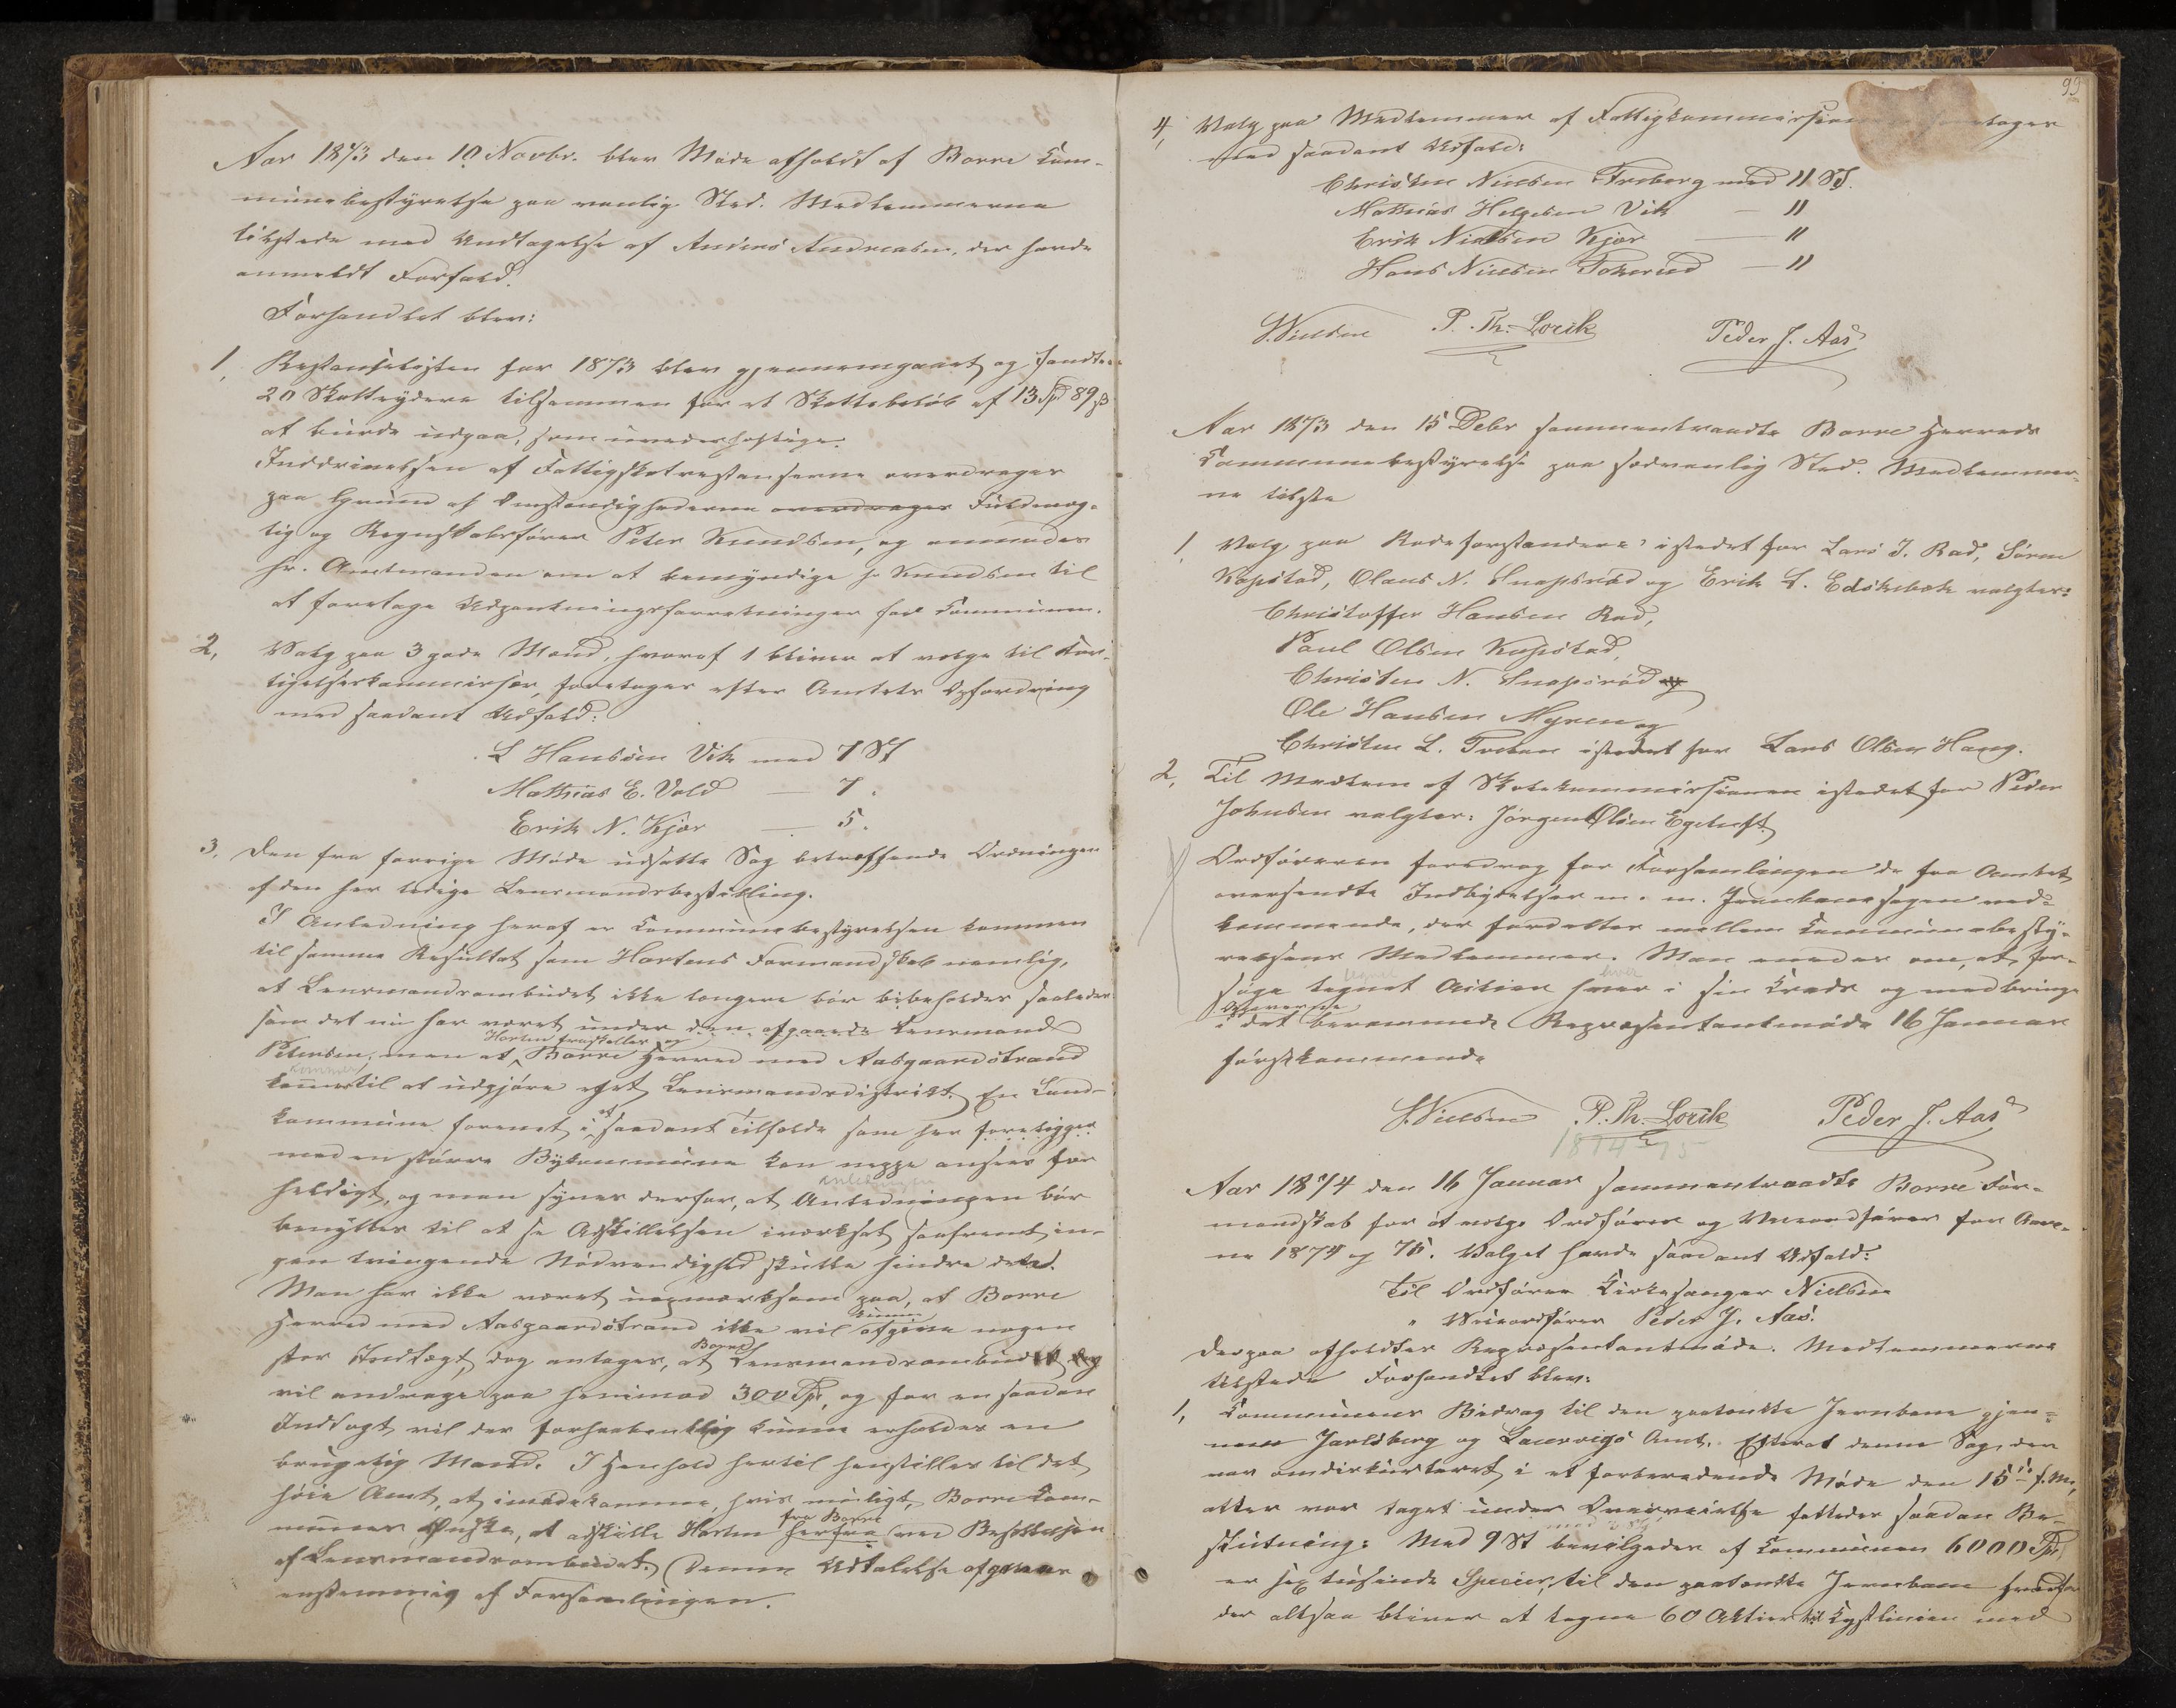 Aar 1873 den 10 Novbr. blev Møde afholdt af Borre Com-
munebestyrelse paa vanlig Sted. Medlemmerne
tilstede med Undtagelse af Anders Andreasen, der havde
anmeldt Forfald.
Forhandlet blev:
1, Restanselisten for 1873 blev gjennemgaaet og fandtes
20 Skatteydere tilsammen for et Skattebeløb af 13 Spd 89 ß
at burde udgaa, som uvederhæftige.
Inddrivelsen af Fattigskatrestanserne overdrages
paa Grund af Omstændighederne overdrages Fuldmæg-
tig og Regnskabsfører Peter Knudsen, og anmodes
Hr. Amtmanden om at bemyndige Hr Knudsen til
at foretage Udpantningsforretninger for Communen.
2, Valg paa 3 gode Mænd, hvoraf 1 bliver at vælge til For-
ligelseskommissær, foretages efter Amtets Opfordring
med saadant Udfald:
L Hanssen Vik med 7 St
Mathias E. Vold — 7.
Erik N. Kjær — 5.
3, Den fra forrige Møde udsatte Sag betræffende Ordningen
af den her ledige Lensmandsbestilling.
I Anledning heraf er Communebestyrelsen kommen
til samme Resultat som Hortens Formandskab nemlig,
at Lensmandsombudet ikke længere bør bibeholdes saaledes
som det nu har været under den afgaaede Lensmand
Horten fraskilles og
Petersen, men at Borre Herred med Aasgaardstrand
kommer
kommer til at udgjøre eget Lensmandsdistrikt. En Land-
kommune forenet i et saadant Tilfælde som her foreligger
med en større Bykommune kan neppe ansees for
heldigt, og man synes derfor, at Anledningen bør
benyttes til at se Adskillelsen iværksat saafremt in-
gen tvingende Nødvendighed skulle hindre det.
Man har ikke været uopmærksom paa, at Borre
Herred med Aasgaardstrand ikke vil kunne afgive nogen
stor Indtægt, dog antages, at Borre Lensmandsombud
vil andrage paa henimod 300 Spd, og for en saadan
Indtægt vil der forhaabentlig kunne erholdes en
brugelig Mand. I Henhold hertil henstilles til det
høie Amt, at imødekomme, hvis muligt, Borre Com-
munes Ønske, at adskille Horten fra Borre herfra ved Besættelsen
af Lensmandsombudet. Denne Udtalelse afgaves
enstemmig af Forsamlingen.
99
4, Valg paa Medlemmer af Fattigkommissionen foretages
med saadant Udfald:
Christen Nielsen Freberg med 11 St.
Mathias Helgesen Vik — 11
Erik Nielsen Kjær — 11
Hans Nielsen Tokerud — 11
S. Nielsen P. Th. Lorik Peder J. Aas
Aar 1873 den 15 Debr sammentraadte Borre Herreds
Communebestyrelse paa sædvanlig Sted. Medlemmer-
ne tilste
1, Valg paa Rodeforstandere istedet for Lars J. Rød, Søren
Kopstad, Olaus N. Snapsrød og Erik L. Edikebæk valgtes:
Christoffer Hansen Rød,
Paul Olsen Kopstad,
Christen N. Snapsrød og
Ole Hansen Myren og
Christen L. istedet for Lars Olsen Haug.
2, Til Medlem af Skolekommissionen istedet for Peder
Johnsen valgtes: Jørgen Olsen
Ordføreren foredrog for Forsamlingen de fra Amtet
oversendte Indbydelser m. m. Jernbanesagen ved-
kommende, der fordeltes mellem Communebesty-
relsens Medlemmer. Man enedes om, at for-
søge tegnet Actier hver i sin Kreds og medbringe
i det berammede Repræsentantmøde 16 Januar
førstkommende
S. Nielsen P. Th. Lorik Peder J. Aas
1874-75
Aar 1874 den 16 Januar sammentraadte Borre For-
mandskab for at vælge Ordfører og Viceordfører for Aare-
ne 1874 og 75. Valget havde saadant Udfald:
Til Ordfører Kirkesanger Nielsen
" Viceordfører Peder J. Aas.
Derpaa afholdtes Repræsentantmøde. Medlemmerne
tilstede Forhandlet blev:
1, Communens Bidrag til den paatænkte Jernbane gjen-
nem Jarlsberg og Laurvigs Amt. Efterat denne Sag, der
var omdiskuteret i et forberedende Møde den 15de f. M.,
atter var taget under Overveielse fattedes saadan Be-
slutning: Med 9 St bevilgedes af Communen 6000 Spd
er sex tusinde Species, til den paatænkte Jernbane hvorfor
der altsaa bliver at tegne 60 Aktier til Kystlinien med